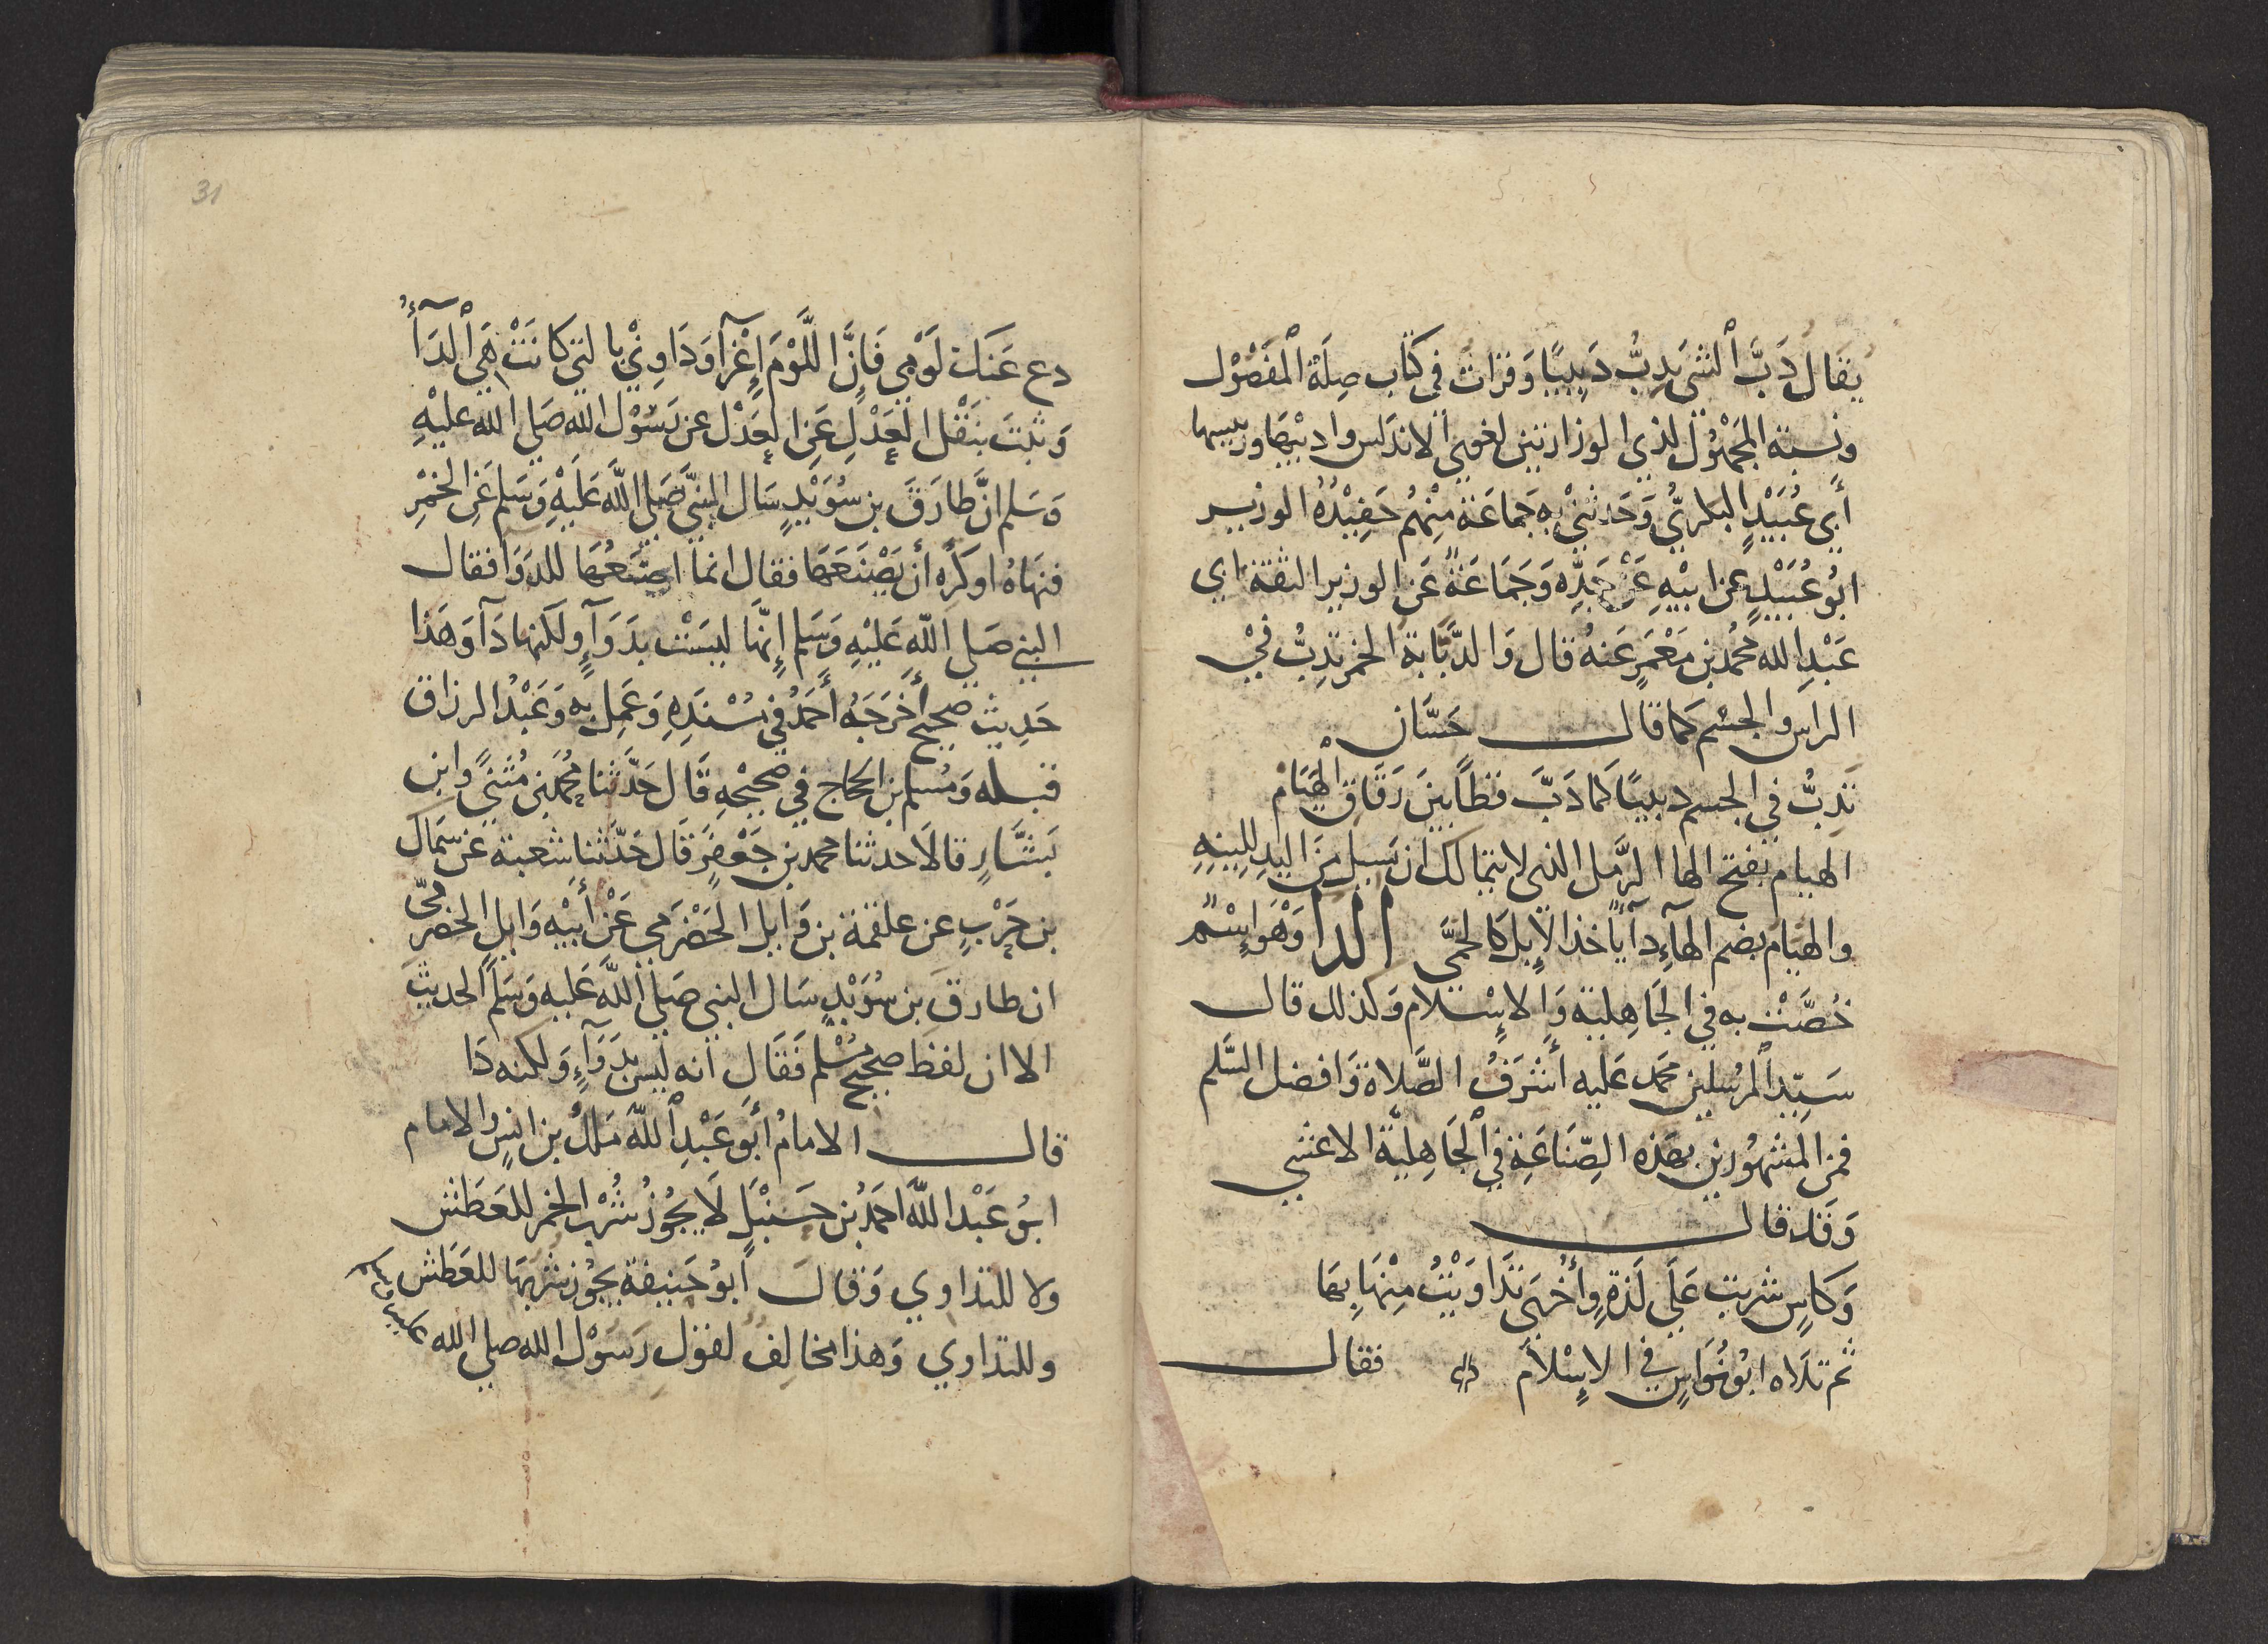 يقال دَبَّ ٱلشي يَدِبُّ دَبِيبًا وَقرات في كتاب صِلَة ٱلمفصُول
ونسبة المجهُول لذي الوزارتين لغوي ٱلاندلس واديبها ورييسها
أَبي عُبَيْدٍ البكريُّ وَحَدثني به جَمَاعَة مِنْهُم حَفِيْدُهُ الوزير
ابُو عُبَيْدٍ عن ابيْهِ عَنْ جَدِّه وَجَمَاعَة عَن الوزير الثقة ابي
عَبْدِ الله محُمد بن مَعْمَرٍ عَنهُ قال وَالدَّبَّابة الخمر تدِبُّ فيْ
الراس والجسْم كما قال حَسَّان
تَدِبُّ في الجسم دبيبًا كما دَبَّ قطًا بينَ رَقَاق الهَيَامْ
الهيام بفتح الها الرَّمل الذي لا يتمالك ان يسيل من اليدِ لِلِينِهِ
والهيَام بضم الهآءِ دآ يأخذ الإبل كالحمَّى الدا وَهْوَ إسْم
خُصَّتْ به في الجَاهِلية وَالإسْلام وَكذلك قال
سَيِّد المرسلين محمد عَليه أشْرَفُ الصَّلاة وَافضل السَّلم
فمن المشهُورين بهَذه الصِّنَاعَةِ في ٱلجَاهِليَّة الاعشي
وَقَد قال
وَكَاسٍ شربت عَلَي لَذةٍ وأُخْرَي تَدَاوَيْتُ مِنْهَا بِهَا
ثم تلَاه ابُو نُوَاسٍ في الإسْلَام فقال
31
دع عَنكَ لَوْمِي فَإِنَّ اللَّوْمَ إغْرَآ وَدَاوِنيْ بالتي كَانَتْ هِيَ ٱلدَآءُ
وَثبتَ بنَقْل العَدْلِ عَن العَدْل عن رَسُوْل الله صَلي الله عليْهِ
وَسَلم انَّ طارَقَ بن سُوَيْدٍ سَال النبيَّ صَلي اللَّه عَلَيْهِ وَسَلم عَنِ الخمْرِ
فنهَاهُ او كَرِه أن يَصْنَعَهَا فقال انما اصْنَعُهَا للدَوَا فقال
النبي صَلي اللَّه عَليْهِ وَسَلم إِنَّهَا ليسَتْ بدَوَآءٍ ولكنها دَآ وَهَذا
حَدِيث صحيح أَخرَجَهُ أَحمَدُ في مُسْنَدِهِ وَعَمِل به وَعَبْدُ الرزاق
قبله وَمُسلم بن الحجاج في صَحيْحِهِ قَال حَدَّثنا محُمَّد بنُ مُثنيً وابن
بَشَّارٍ قالَا حدثنا محمد بن جَعْفرٍ قَال حَدَّثنا شعبة عن سمَاك
بن حَرْبٍ عن علقمة بن وَايل الحَضْرَمي عَنْ أبيْهِ وَايلٍ الحَضْرَميّ
ان طارقَ بن سُوَيْدٍ سَال النبي صَلي اللَّه عَليه وَسَلم الحديث
الا ان لفظ صحيح مُسْلم فَقَال انه ليس بدَوَآءٍ وَلكنه دَا
قال الامامُ أَبُو عَبْدِ اللَّه مَلكُ بن انسٍ والامام
ابُو عَبْد اللَّه احمَدُ بن حَنْبَلٍ لَا يجُوْزُ شُرْبُ الخمر للعَطَش
ولا للتداوي وَقال أَبوُ حَنيفة يجُوْز شربهَا للعَطَش
وللتداوي وَهذا مخالِف لقوْل رَسُوْل الله صلي الله عليه وسلم